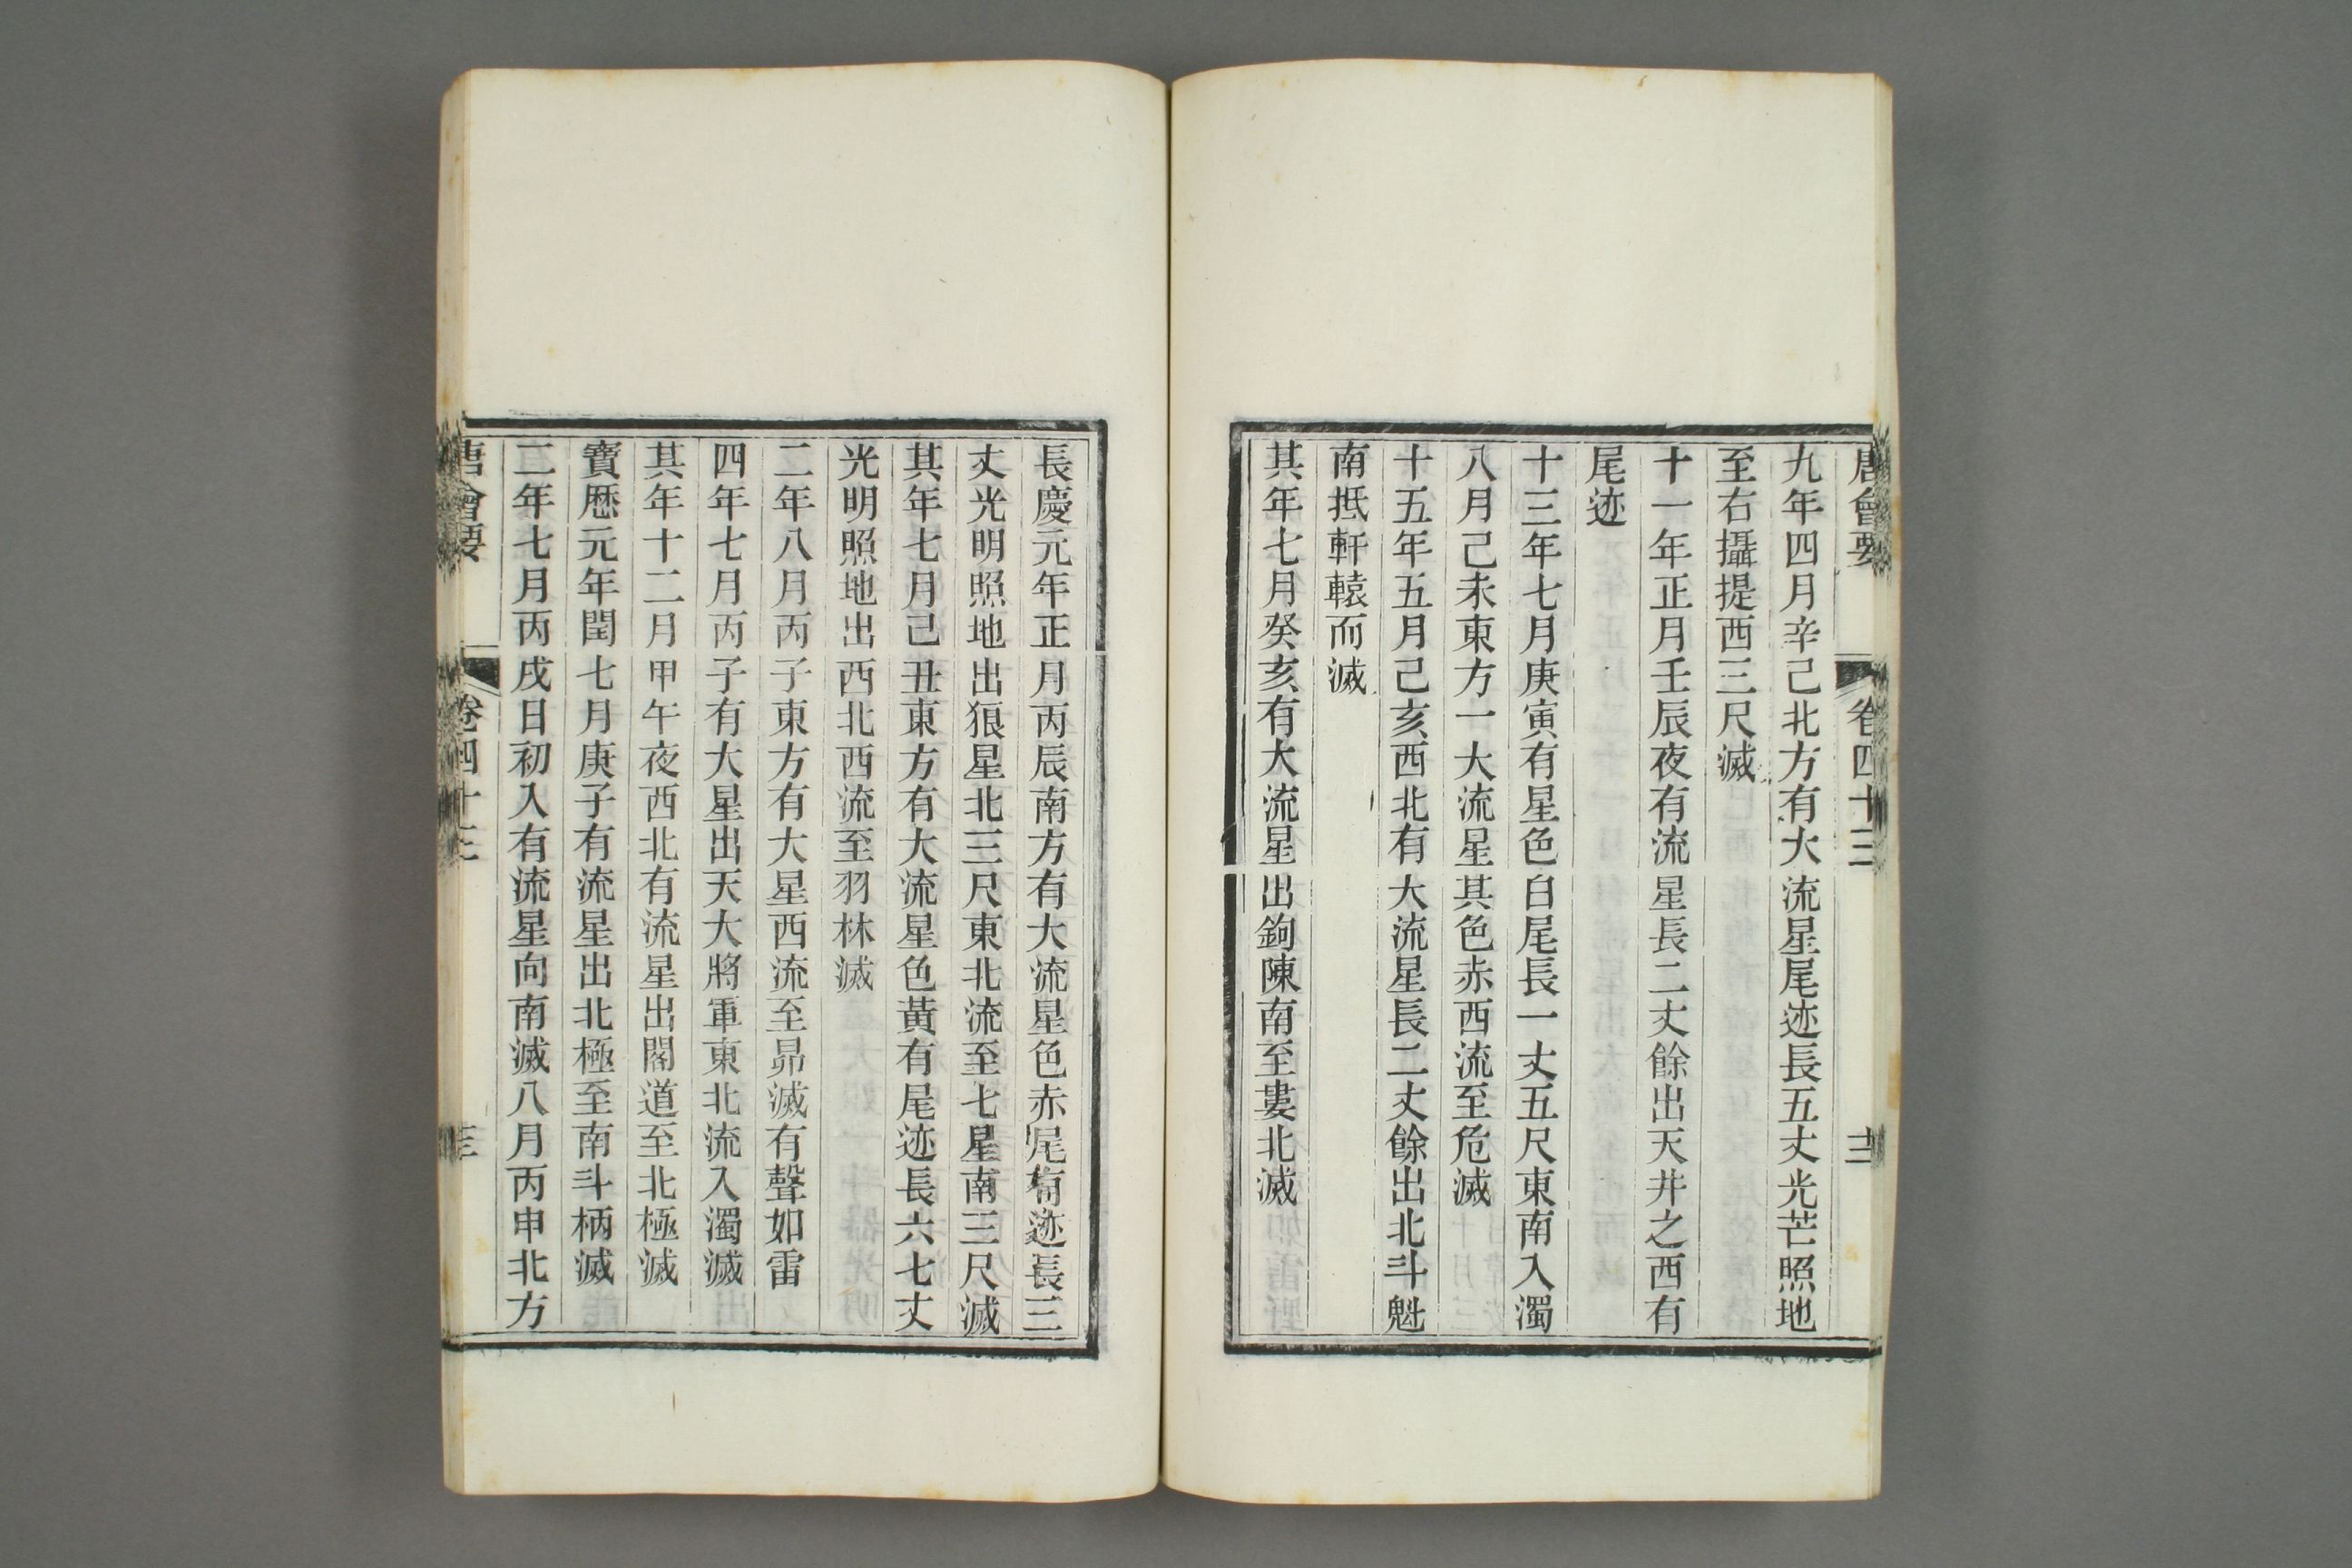 唐會要 卷四十三 十二
九年四月辛己北方有大流星尾迹長五丈光芒照地
至右攝提西三尺滅
十一年正月壬辰夜有流星長二丈餘出天井之西有
尾迹
十三年七月庚寅有星色白尾長一丈五尺東南入濁
八月己未東方一大流星其色赤西流至危滅
十五年五月己亥西北有大流星長二丈餘出北斗魁
南抵軒轅而滅
其年七月癸亥有大流星出鉤陳南至婁北滅
長慶元年正月丙辰南方有大流星色赤尾有迹長三
丈光明照地出狼星北三尺東北流至七星南三尺滅
其年七月己丑東方有大流星色黃有尾迹長六七丈
光明照地出西北西流至羽林滅
二年八月丙子東方有大星西流至昴滅有聲如雷
四年七月丙子有大星出天大將軍東北流入濁滅
其年十二月甲午夜西北有流星出閣道至北極滅
寶歷元年閏七月庚子有流星出北極至南斗柄滅
二年七月丙戌日初入有流星向南滅八月丙申北方
唐會要 卷四十三